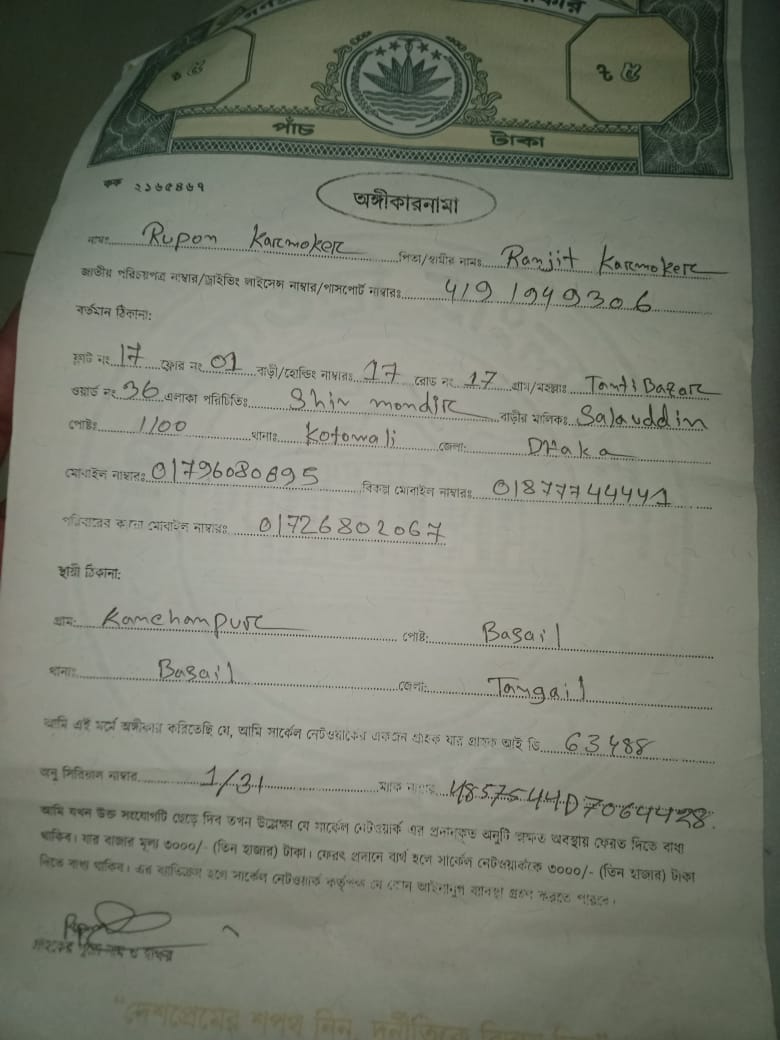 ৳ ৫ ৳ ৫
পাঁচ টাকা
কক ২১৬৫৪৬৭
অঙ্গীকারনামা
নামঃ Rupon Karmoker পিতা/স্বামীর নামঃ Ranjit Karmoker
জাতীয় পরিচয়পত্র নাম্বার/ড্রাইভিং লাইসেন্স নাম্বার/পাসপোর্ট নাম্বারঃ 4191949306
বর্তমান ঠিকানা:
ফ্লাট নং 17 ফ্লোর নং 01 বাড়ী/হোল্ডিং নাম্বারঃ 17 রোড নং 17 গ্রাম/মহল্লাঃ Tanti Bazar
ওয়ার্ড নং 36 এলাকা পরিচিতিঃ Shiv mondir বাড়ীর মালিকঃ Salauddin
পোষ্টঃ 1100 থানাঃ Kotowali জেলা: Dhaka
মোবাইল নাম্বারঃ 01796080895 বিকল্প মোবাইল নাম্বারঃ 01877744441
পরিবারের কারো মোবাইল নাম্বারঃ 01726802067
স্থায়ী ঠিকানা:
গ্রাম: Kanchanpur পোষ্ট: Basail
থানাঃ Basail জেলা: Tangail
আমি এই মর্মে অঙ্গীকার করিতেছি যে, আমি সার্কেল নেটওয়াকের একজন গ্রাহক যার গ্রাহক আই ডি 63488
অনু সিরিয়াল নাম্বার 1/31 ম্যাক নাম্বার 4857544D7064428.
আমি যখন উক্ত সংযোগটি ছেড়ে দিব তখন উল্লেক্ষ্য যে সার্কেল নেটওয়ার্ক এর প্রদানকৃত অনুটি অক্ষত অবস্থায় ফেরত দিতে বাধ্য
থাকিব। যার বাজার মূল্য ৩০০০/- (তিন হাজার) টাকা। ফেরৎ প্রদানে ব্যর্থ হলে সার্কেল নেটওয়ার্ককে ৩০০০/- (তিন হাজার) টাকা
দিতে বাধ্য থাকিব। এর ব্যতিক্রম হলে সার্কেল নেটওয়ার্ক কর্তৃপক্ষ যে কোন আইনানুগ ব্যবস্থা গ্রহণ করতে পারবে।
"দেশপ্রেমের শপথ নিন, দুর্নীতিকে বিদায় দিন"